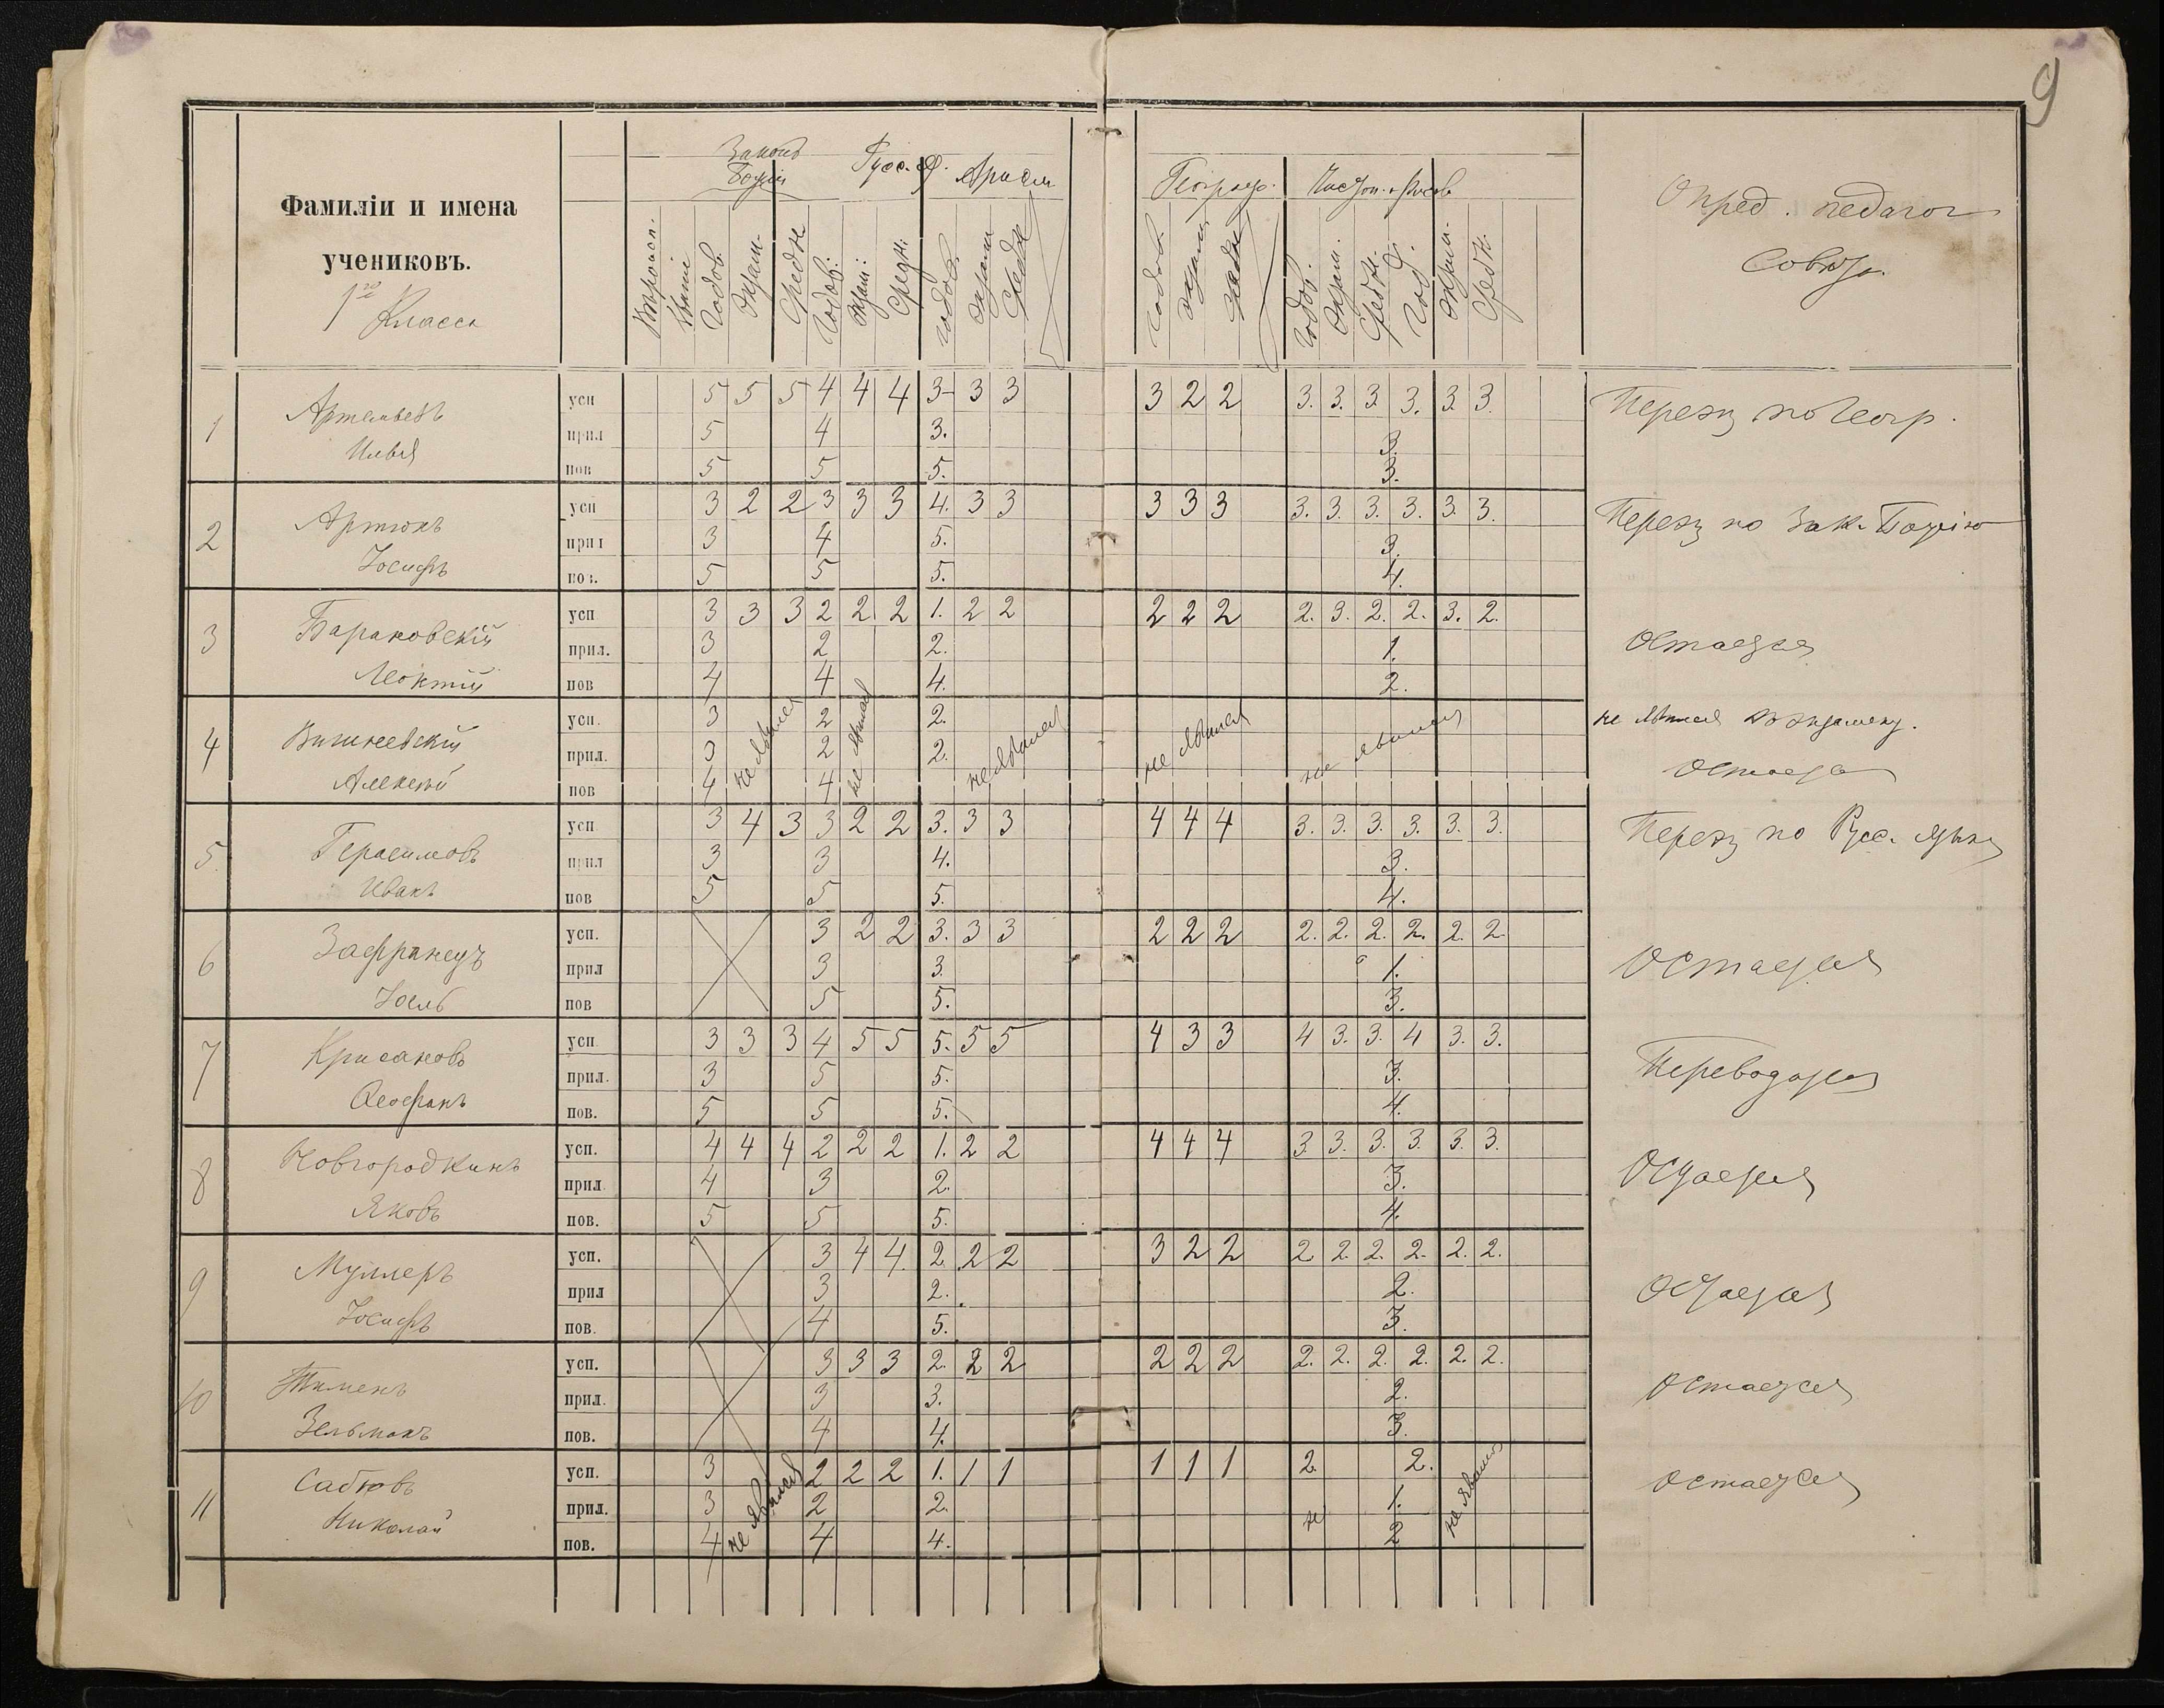 9
Законъ
Божій
Русс. Я.
Арием
Географ.
Опред. педагог
Совѣт.
Фамиліи и имена
учениковъ.
1го
Класса
Годов. Экзам. Средн. Годов. Экзам. Средн. Годов. Экзам Средн
Годов. Экзам Средн Годов. Экзам. Средн. Год. Экзам. Средн.
1 Артемьевъ усп 5 5 5 4 4 4 3 3 3 3 2 2 3. 3. 3. 3. 3. 3. Перекз по Геогр.
Илья прил 5 4 3. 3.
пов 5 5 5. 3.
2 Артюхъ усп 3 2 2 3 3 3 4. 3 3 3 3 3 3. 3. 3. 3. 3. 3. Перекз по Зак. Божію
Іосифъ прил 3 4 5. 3.
пов. 5 5 5. 4.
3 Барановскій усп 3 3 3 2 2. 2 1. 2 2 2 2 2 2. 3. 2. 2. 3. 2. Остается
Леонтій прил. 3 2 2. 1.
пов 4 4 4. 2.
4 Вишневскій усп. 3 не явился 2 не явился 2. не явился не явился не явился не явился къ экзамену.
Алексѣй прил. 3 2 2. Остается
пов 4 4
5. Герасимовъ усп 3 4 3 3 2 2 3. 3 3 4 4 4 3. 3. 3. 3. 3. 3. Перекз по Русс. языку
Иванъ прил 3 3 4. 3.
пов 5 5 5. 4.
6 Зафранецъ усп. 3 2 2 3. 3 3 2 2 2 2. 2. 2. 2. 2. 2. Остается
Іосль прил 3 3. 1.
пов 5 5. 3.
7 Крисановъ усп. 3 3 3 4 5 5 5. 5 5 4 3 3 4 3. 3. 4 3. 3. Переводится
Ѳеофанъ прил. 3 5 5. 3.
пов. 5 5 5. 4.
8 Новгородкинъ усп. 4 4 4 2 2 2 1. 2 2 4 4 4 3. 3. 3. 3. 3. 3. Остается
Яковъ прил. 4 3 2. 3.
пов. 5 5 5. 4.
9 Муллеръ усп. 3 4 4. 2. 2 2 3 2 2 2. 2. 2. 2. 2. 2. Остается
Іосифъ прил 3 2. 2.
пов. 4 5. 3.
10 Тименъ усп. 3 3 3 2. 2 2 2 2 2 2. 2. 2. 2. 2. 2. Остается
Зельманъ прил. 3 3. 2.
пов. 4 4. 3.
11 Сабловъ усп. 3 не явился 2 2 2 1. 1 1 1 1 1 2. 2. не явился Остается
Николай прил. 3 2 2. не 1.
пов. 4 4 4. 2